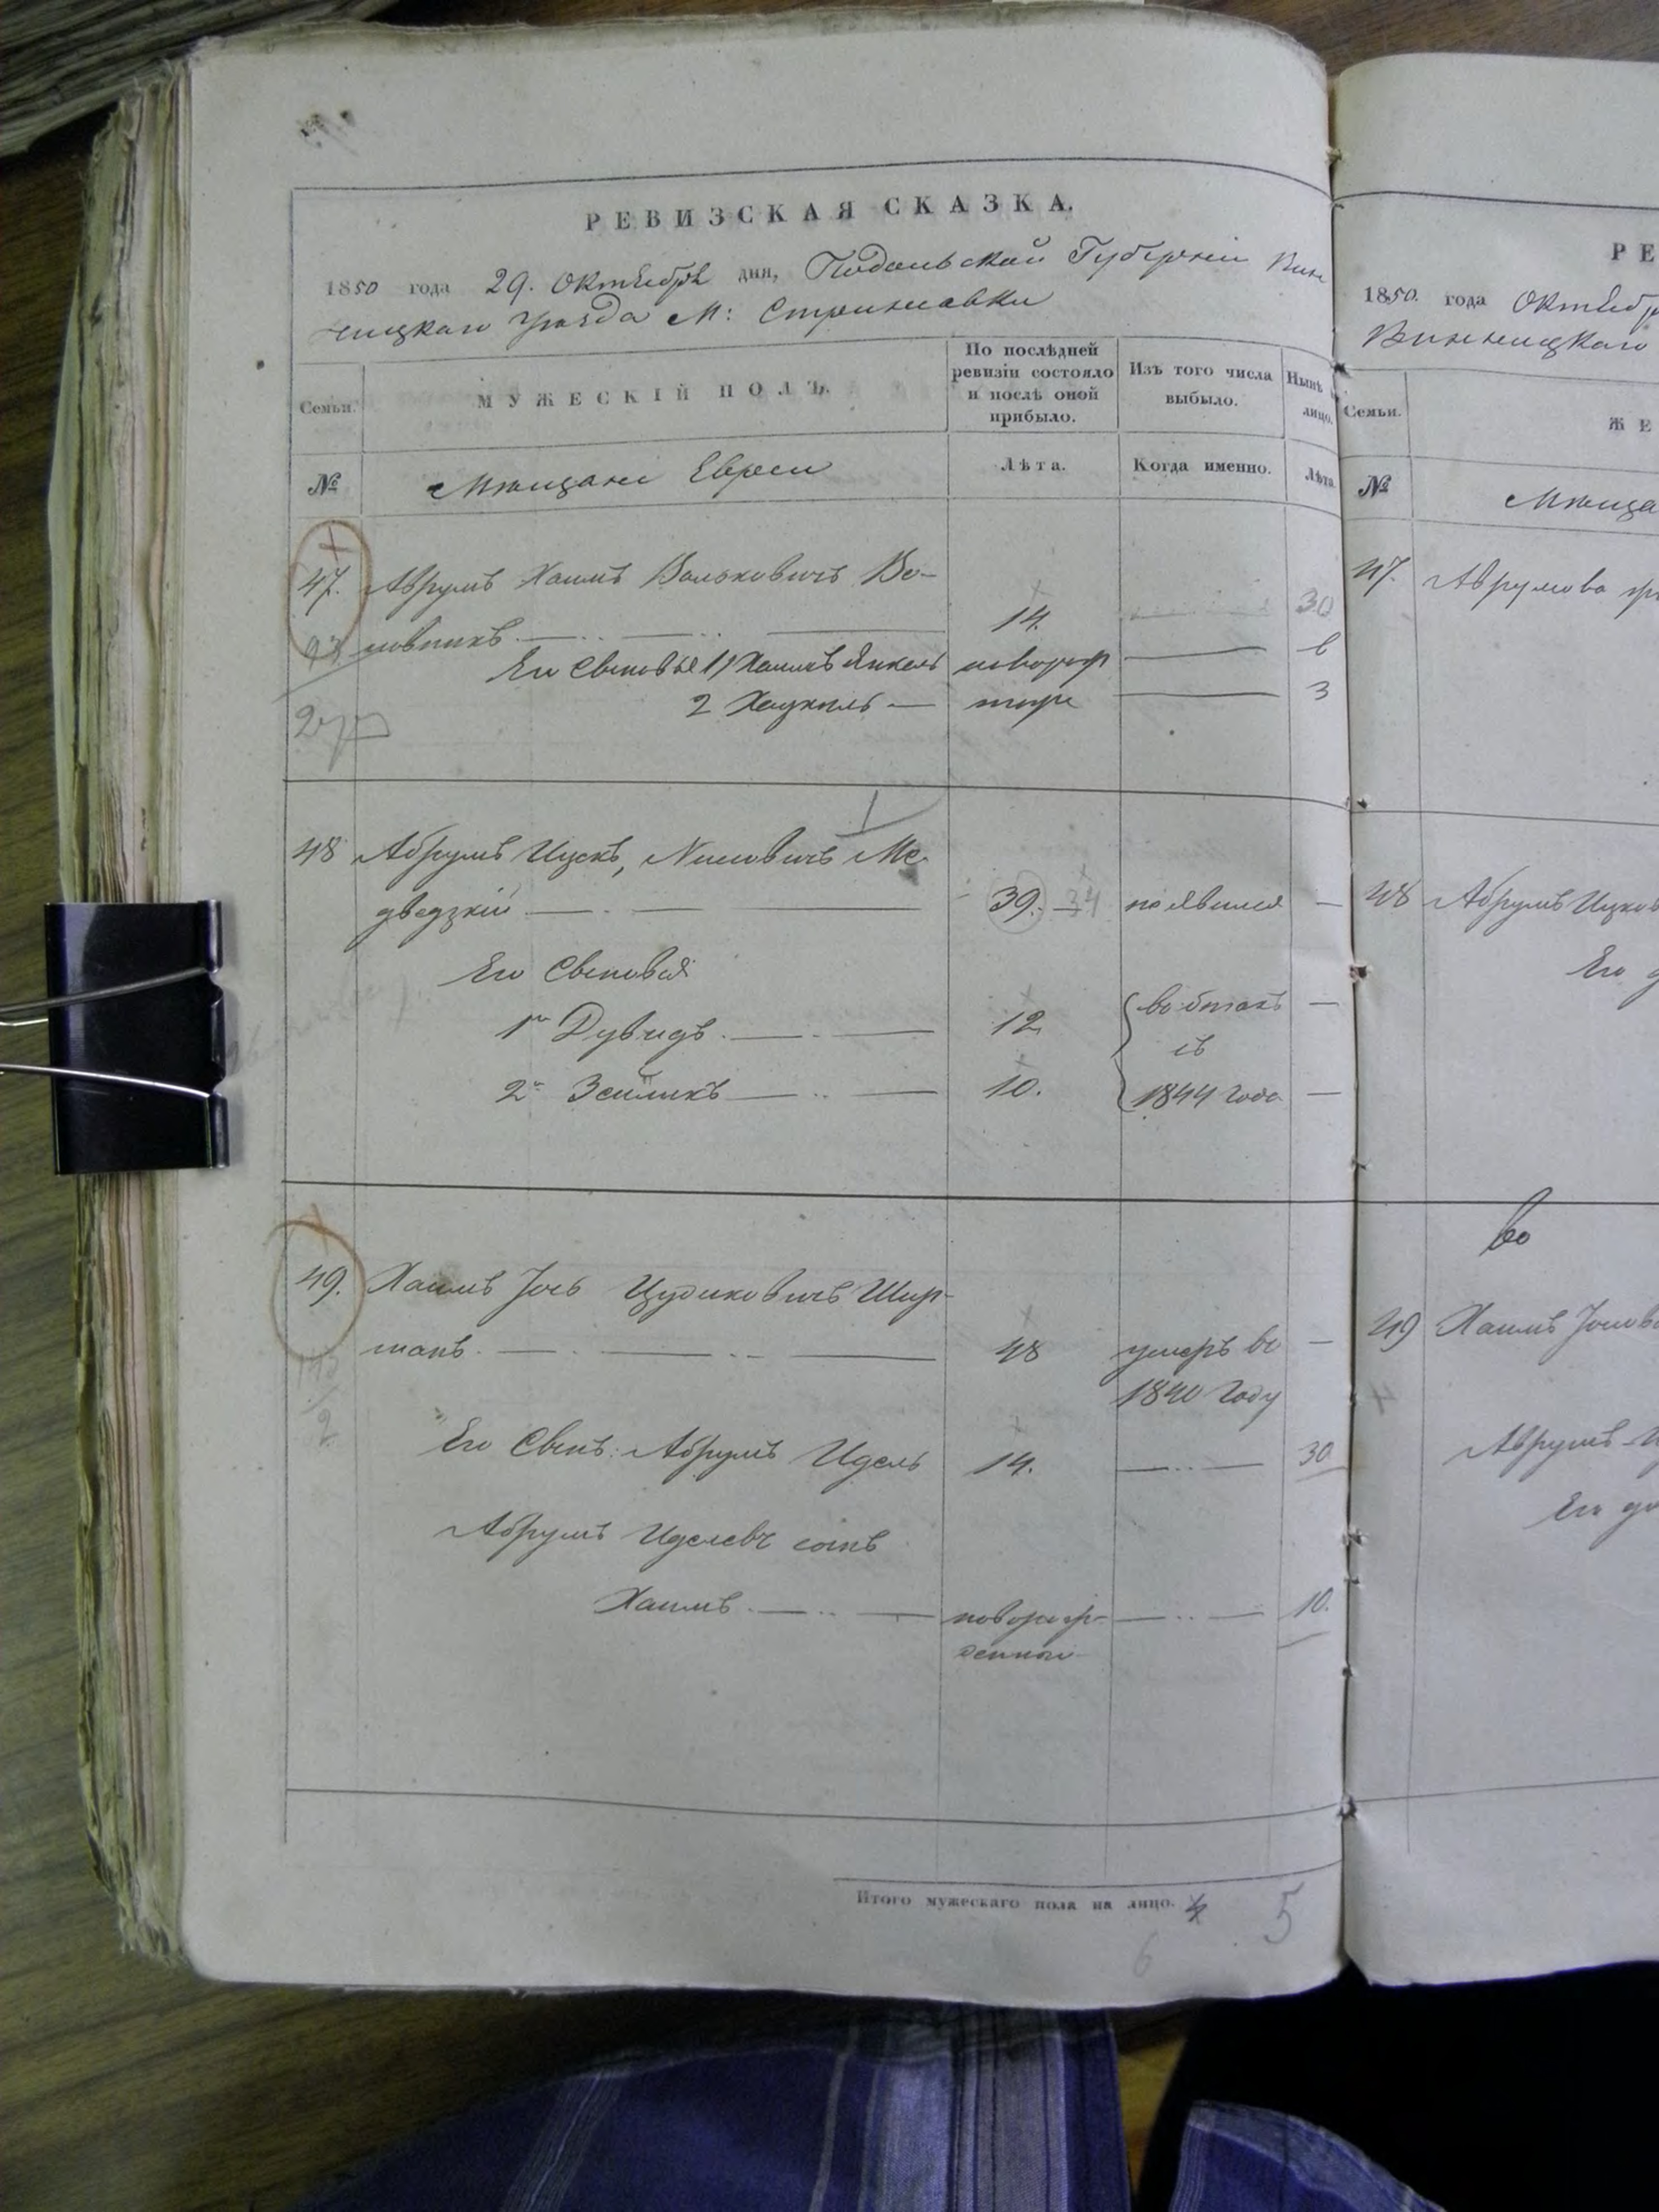 РЕВИЗСКАЯ СКАЗКА.
1850 года 29. Октября дня, Подольской Губерніи Вин
ницкаго Уѣзда М: Стрижавки
Семьи.
МУЖЕСКІЙ ПОЛЪ.
По послѣдней
ревизіи состояло
и послѣ оной
прибыло.
Изъ того числа
выбыло.
Нынѣ
лицо.
№
Мѣщане Евреи
Лѣта.
Когда именно.
Лѣта
47. Аврумъ Хаимъ Вольковичъ Во-
14. 30
Его Сыновья 1) Хаимъ Янкель новорож 6
2 Хацкель — тоже — 3
48 Абрумъ Ицекъ, Мe
дведзкій — 39. 34 —
Его Сыновья
1й Дувидъ. — 12 въ бѣгахъ —
съ
2й Зейликъ — 10. 1844 года —
49. Хаимъ Іось Цудиковичъ Шир-
манъ. — 48 умеръ въ —
1840 году
Его Сынъ: Абрумъ Идель 14. — 30
Абрумъ Иделевъ сынъ
Хаимъ. — новорож- — 10.
денной
Итого мужескаго пола на лицо. 4 5
6
РЕ
1850. года Октябр
Винницкаго
Семьи.
ЖЕ
№
Мѣща
47. Аврумова
48 Абрумъ Ицков
Его
во
49 Хаимъ
4
Аврумъ
Его